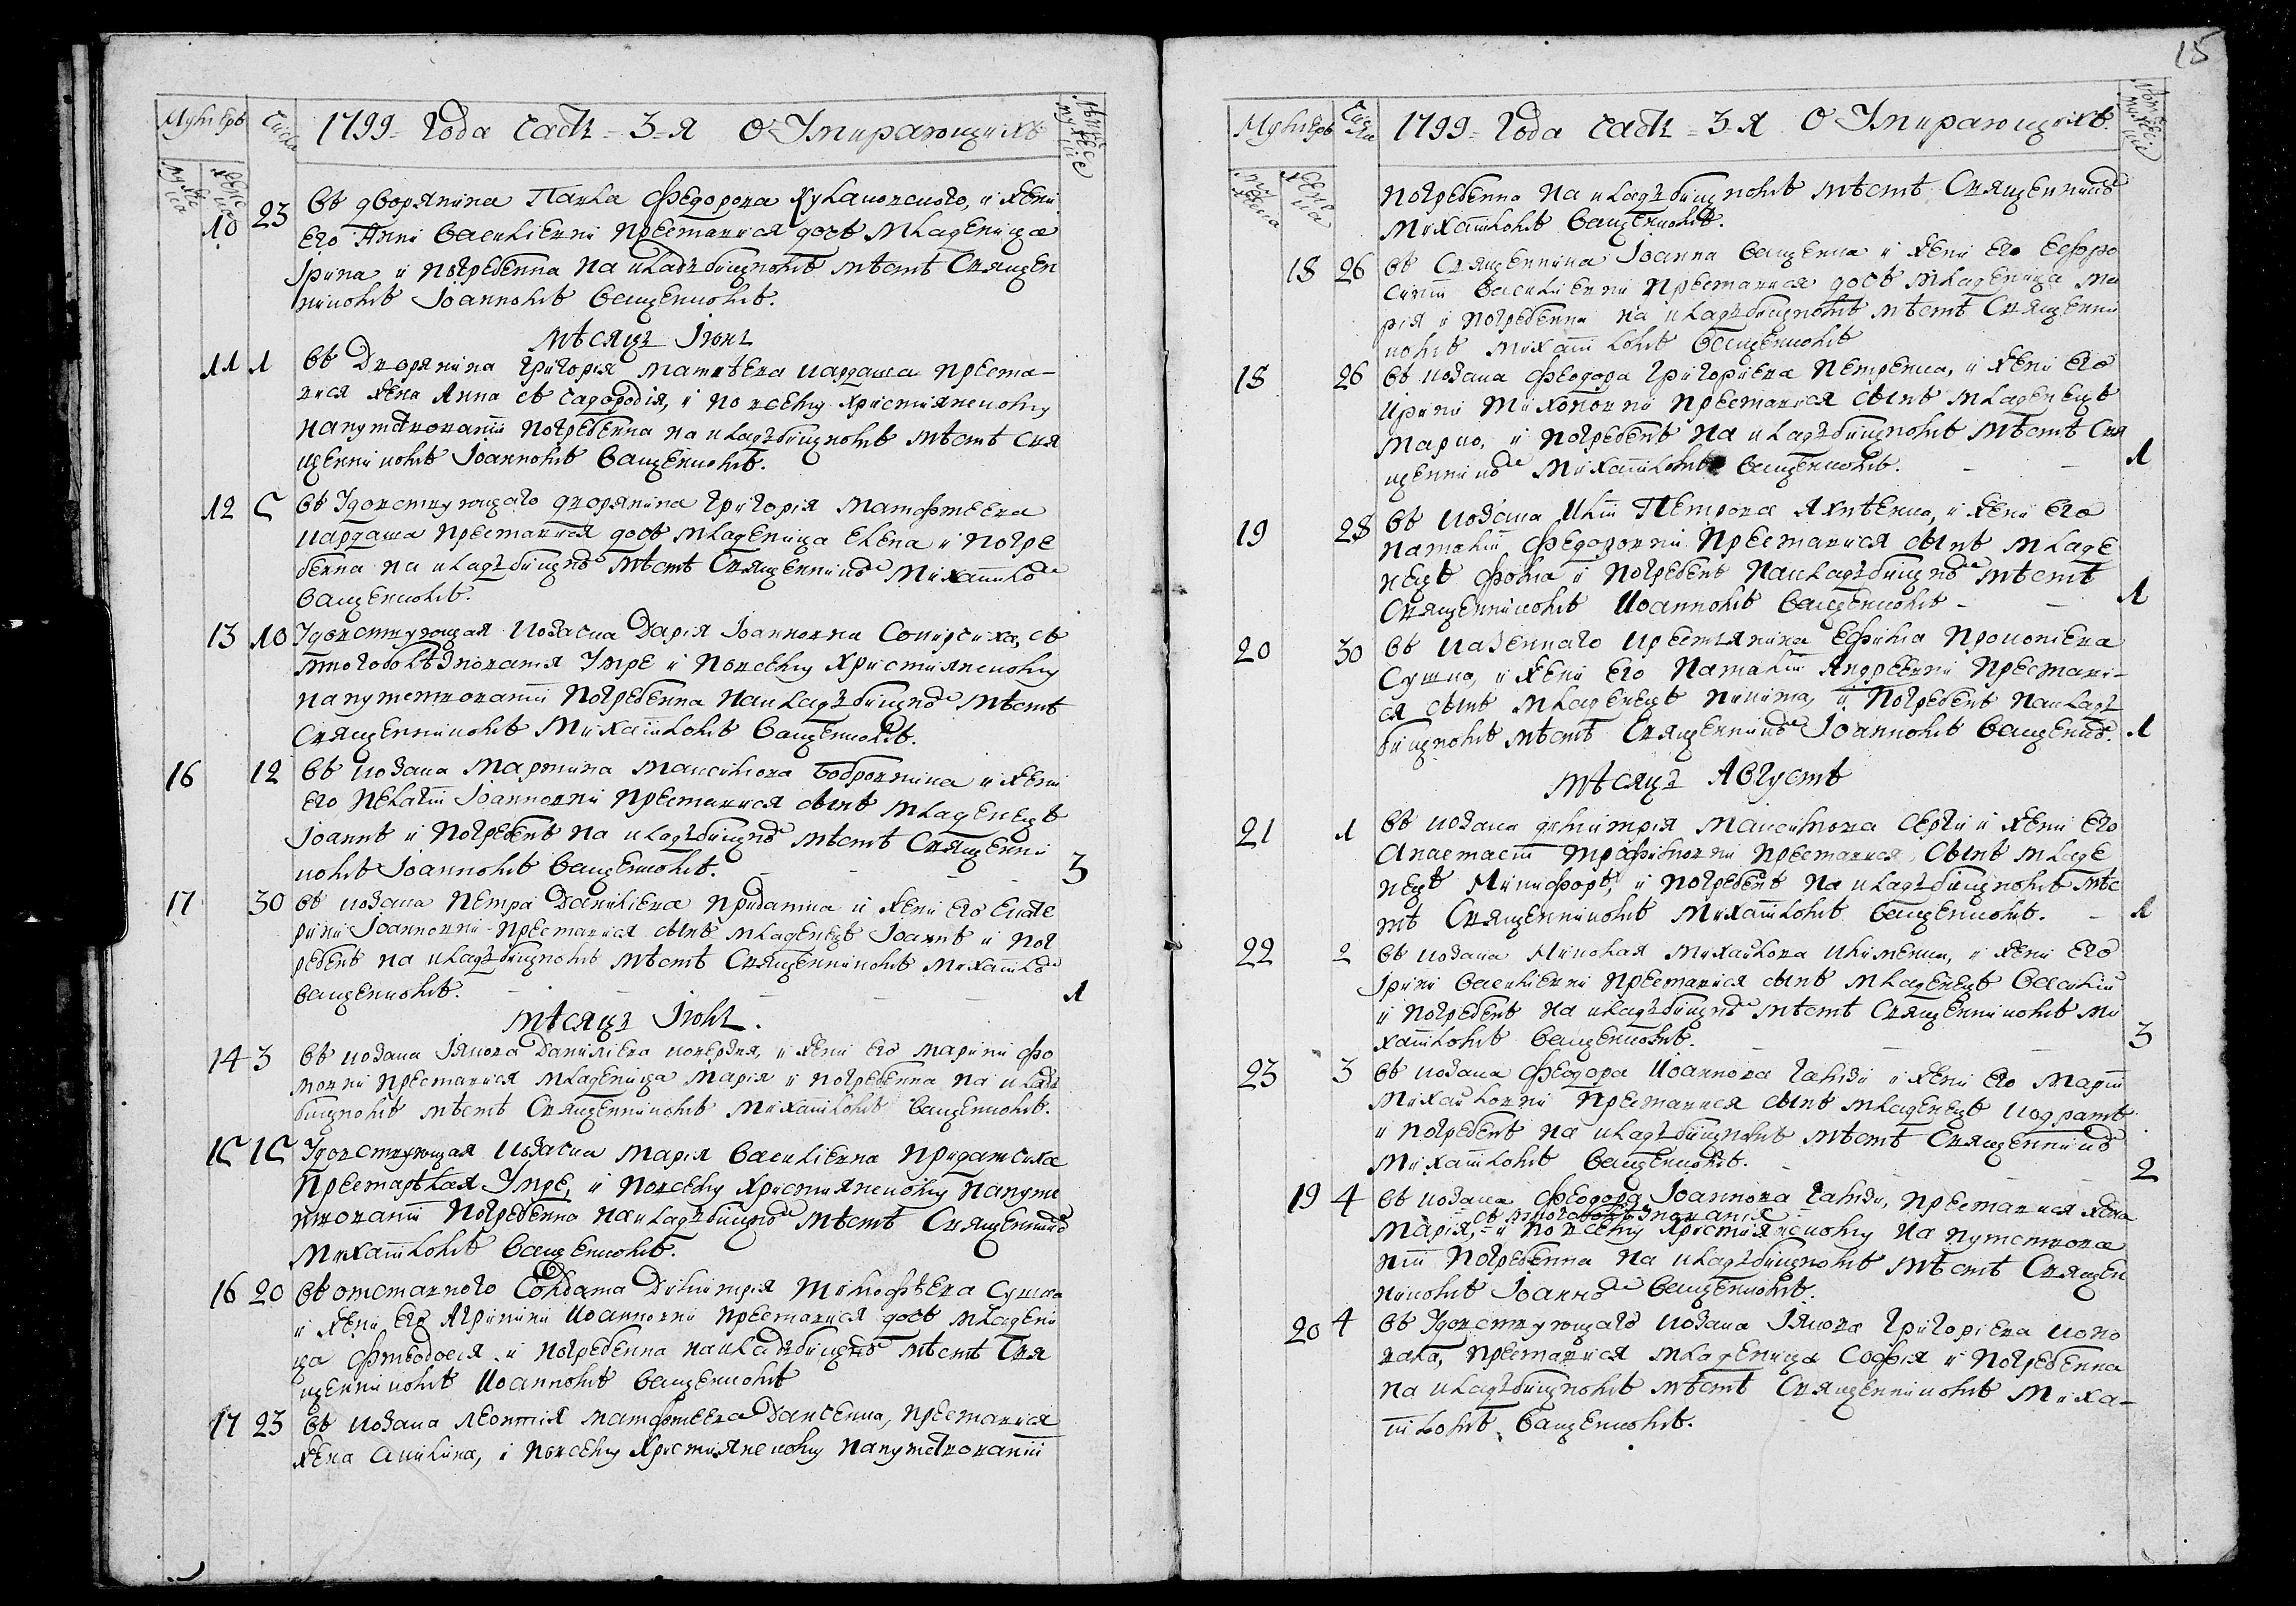 15
Нумеръ Числа 1799 = Года часть = 3 = я О Умирающихъ
10 23 въ дворянина Павла Федорова и жени
его Анни Василіевни преставися дочь младеница
Ірина и погребенна на кладбищномъ мѣстѣ Священ
никомъ Іоанномъ Ващенкомъ.
мѣсяцъ Іюнь
11 1 въ Дворянина Григорія Матвѣева Кардаша преста-
вися жена Анна и по всему християнскому
напутствованіи погребенна на кладбищномъ мѣстѣ Свя
щенникомъ Іоанномъ Ващенкомъ.
12 5 въ Удовствующаго дворянина Григорія Матфтеева
Кардаша преставися дочь младеница Елена и погре
бенна на кладбищно мѣстѣ Священнико Михаило
Ващенкомъ.
13 10 Удовствующая козачка Дарія Іоанновна съ
многоболѣзнованія Умре и повсему християнскому
напутствованіи погребенна накладбищно мѣстѣ
Священникомъ Михаиломъ Ващенкомъ.
16 12 въ козака Мартина Максимова и жени
его Пелагіи Іоанновни преставися сынъ младенецъ
Іоаннъ и погребенъ на кладбищно мѣстѣ Священни
комъ Іоанномъ Ващенкомъ. 3
17 30 въ козака Петра Данилієва Придатка и жени его Екате
рини Іоанновни преставися сынъ младенецъ Іоаннъ и пог
ребенъ на кладбищномъ мѣстѣ Священникомъ Михаило
Ващенкомъ. 1
мѣсяцъ Іюль.
14 3 въ козака Іякова Данилієва и жени его Марини Фо
минни преставися младеница Марія и погребенна на клад
бищномъ мѣстѣ Священникомъ Михаиломъ Ващенкомъ.
15 15 Удовствующая козачка Марія Василіевна
Престарѣлая Умре, и повсему християнскому напутс
твованіи погребенна накладбищно мѣстѣ Священнико
Михаиломъ Ващенкомъ.
16 20 въ отставного Солдата Димитрія Тимофѣева Сушка
и жени его Агрипини Иоанновни преставися дочь младени
ца Фтеодосія и погребенна накладбищно мѣстѣ Свя
щенникомъ Иоанномъ Ващенкомъ
17 23 въ козака Леонтія Матфтеева преставися
жена Акилина, и повсему християнскому напутствованіи
Нумеръ Числа 1799 = Года часть = 3 = я О Умирающихъ.
погребенна на кладбищномъ мѣстѣ Священнико
Михаиломъ Ващенкомъ.
18 26 въ Священника Іоанна Ващенка и жени его Ефро
синіи Василіевни преставися дочь младеница Ма
рія и погребенна на кладбищномъ мѣстѣ Священни
комъ Михаиломъ Ващенкомъ
18 26 въ козака Феодора Григориева Петренка, и жени его
Ирини Тихоновни преставися сынъ младенецъ
Марко, и погребенъ на кладбищномъ мѣстѣ Свя
щеннико Михаиломъ Ващенкомъ. 1
19 28 въ козака Иліи Петрова и жени его
Наталіи Федоровни преставися сынъ младе
нецъ Фома и погребенъ накладбищно мѣстѣ
Священникомъ Иоанномъ Ващенкомъ 1
20 30 въ казеннаго крестянина Ефима Прокопіева
Сушка, и жени его Наталіи Андреевни престави-
ся сынъ младенецъ Никита, и погребенъ наклад
бищномъ мѣстѣ Священнико Іоанномъ Ващенко. 1
мѣсяцъ Августъ
21 1 въ козака Димитрія Максимова и жени его
Анастасіи Трофимовни преставися сынъ младе
нецъ Никифоръ, и погребенъ на кладбищномъ мѣс
тѣ Священникомъ Михаиломъ Ващенкомъ. 1
22 2 въ козака Николая Михайлова Клименка, и жени его
Ірини Василіевни преставися сынъ младенецъ Василій
и погребенъ на кладбищно мѣстѣ Священникомъ Ми
хаиломъ Ващенкомъ. 3
23 3 въ козака Феодора Иоаннова и жени его Маріи
Михайловни преставися сынъ младенецъ Кодратъ
и погребенъ на кладбищномъ мѣстѣ Священнико
Михаиломъ Ващенкомъ. 2
19 4 въ козака Феодора Іоаннова преставися жена
съ многоболѣзнованія
Марія, и повсему християнскому на путствова
ніи погребенна на кладбищномъ мѣстѣ Священ
никомъ Іоанно Ващенкомъ.
20 4 въ Удовствующаго козака Іякова Григоріева Коно
вала, преставися младеница Софія и погребенна
на кладбищномъ мѣстѣ Священникомъ Миха-
иломъ Ващенкомъ.